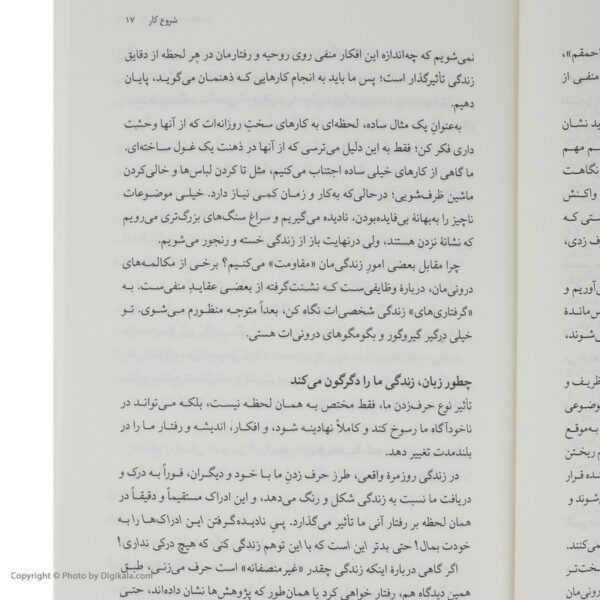 شروع کار ۱۷
نمی‌شویم که چه‌اندازه این افکار منفی روی روحیه و رفتارمان در هر لحظه از دقایق
زندگی تأثیرگذار است؛ پس ما باید به انجام کارهایی که ذهنمان می‌گوید، پایان
دهیم.
به‌عنوانِ یک مثال ساده، لحظه‌ای به کارهای سختِ روزانه‌ات که از آنها وحشت
داری فکر کن؛ فقط به این دلیل می‌ترسی که از آنها در ذهنت یک غول ساخته‌ای.
ما گاهی از کارهای خیلی ساده اجتناب می‌کنیم، مثل تا کردن لباس‌ها و خالی‌کردن
ماشین ظرف‌شویی؛ درحالی‌که به‌کار و زمان کمی نیاز دارد. خیلی موضوعات
ناچیز را به‌بهانهٔ بی‌فایده‌بودن، نادیده می‌گیریم و سراغ سنگ‌های بزرگ‌تری می‌رویم
که نشانهٔ نزدن هستند، ولی درنهایت باز از زندگی خسته و رنجور می‌شویم.
چرا مقابل بعضی امورِ زندگی‌مان «مقاومت» می‌کنیم؟ برخی از مکالمه‌های
درونی‌مان، دربارهٔ وظایفی‌ست که نشئت‌گرفته از بعضی عقایدِ منفی‌ست. به
«گرفتاری‌های» زندگی شخصی‌ات نگاه کن، بعداً متوجه منظورم می‌شوی. تو
خیلی درگیر گیروگور و بگومگوهای درونی‌ات هستی.
چطور زبان، زندگی ما را دگرگون می‌کند
تأثیر نوع حرف‌زدن ما، فقط مختص به همان لحظه نیست، بلکه می‌تواند در
ناخودآگاه ما رسوخ کند و کاملاً نهادینه شود، و افکار، اندیشه و رفتار ما را در
بلندمدت تغییر دهد.
در زندگی روزمرهٔ واقعی، طرز حرف زدنِ ما با خود و دیگران، فوراً به درک و
دریافت ما نسبت به زندگی شکل و رنگ می‌دهد، و این ادراک مستقیماً و دقیقاً در
همان لحظه بر رفتار آنی ما تأثیر می‌گذارد. پیِ نادیده‌گرفتن این ادراک‌ها را به
خودت بمال! حتی بدتر این است که با این توهم زندگی کنی که هیچ درکی نداری!
اگر گاهی دربارهٔ اینکه زندگی چقدر «غیرمنصفانه» است حرف می‌زنی، طبق
همین دیدگاه هم، رفتار خواهی کرد یا همان‌طور که پژوهش‌ها نشان داده‌اند، حتی
احمقم»،
منفی از
ید نشان
م مهم
نگاهت
واکنش
ستی که
ف زدی،
ی‌آوریم و
س‌مانده
ی‌شوند،
ظریف و
وضوعی
به‌موقع
م ریختن
ده قرار
شوند و
می‌کنند.
سخت‌تر
رونی‌مان
Copyright © Photo by Digikala.com